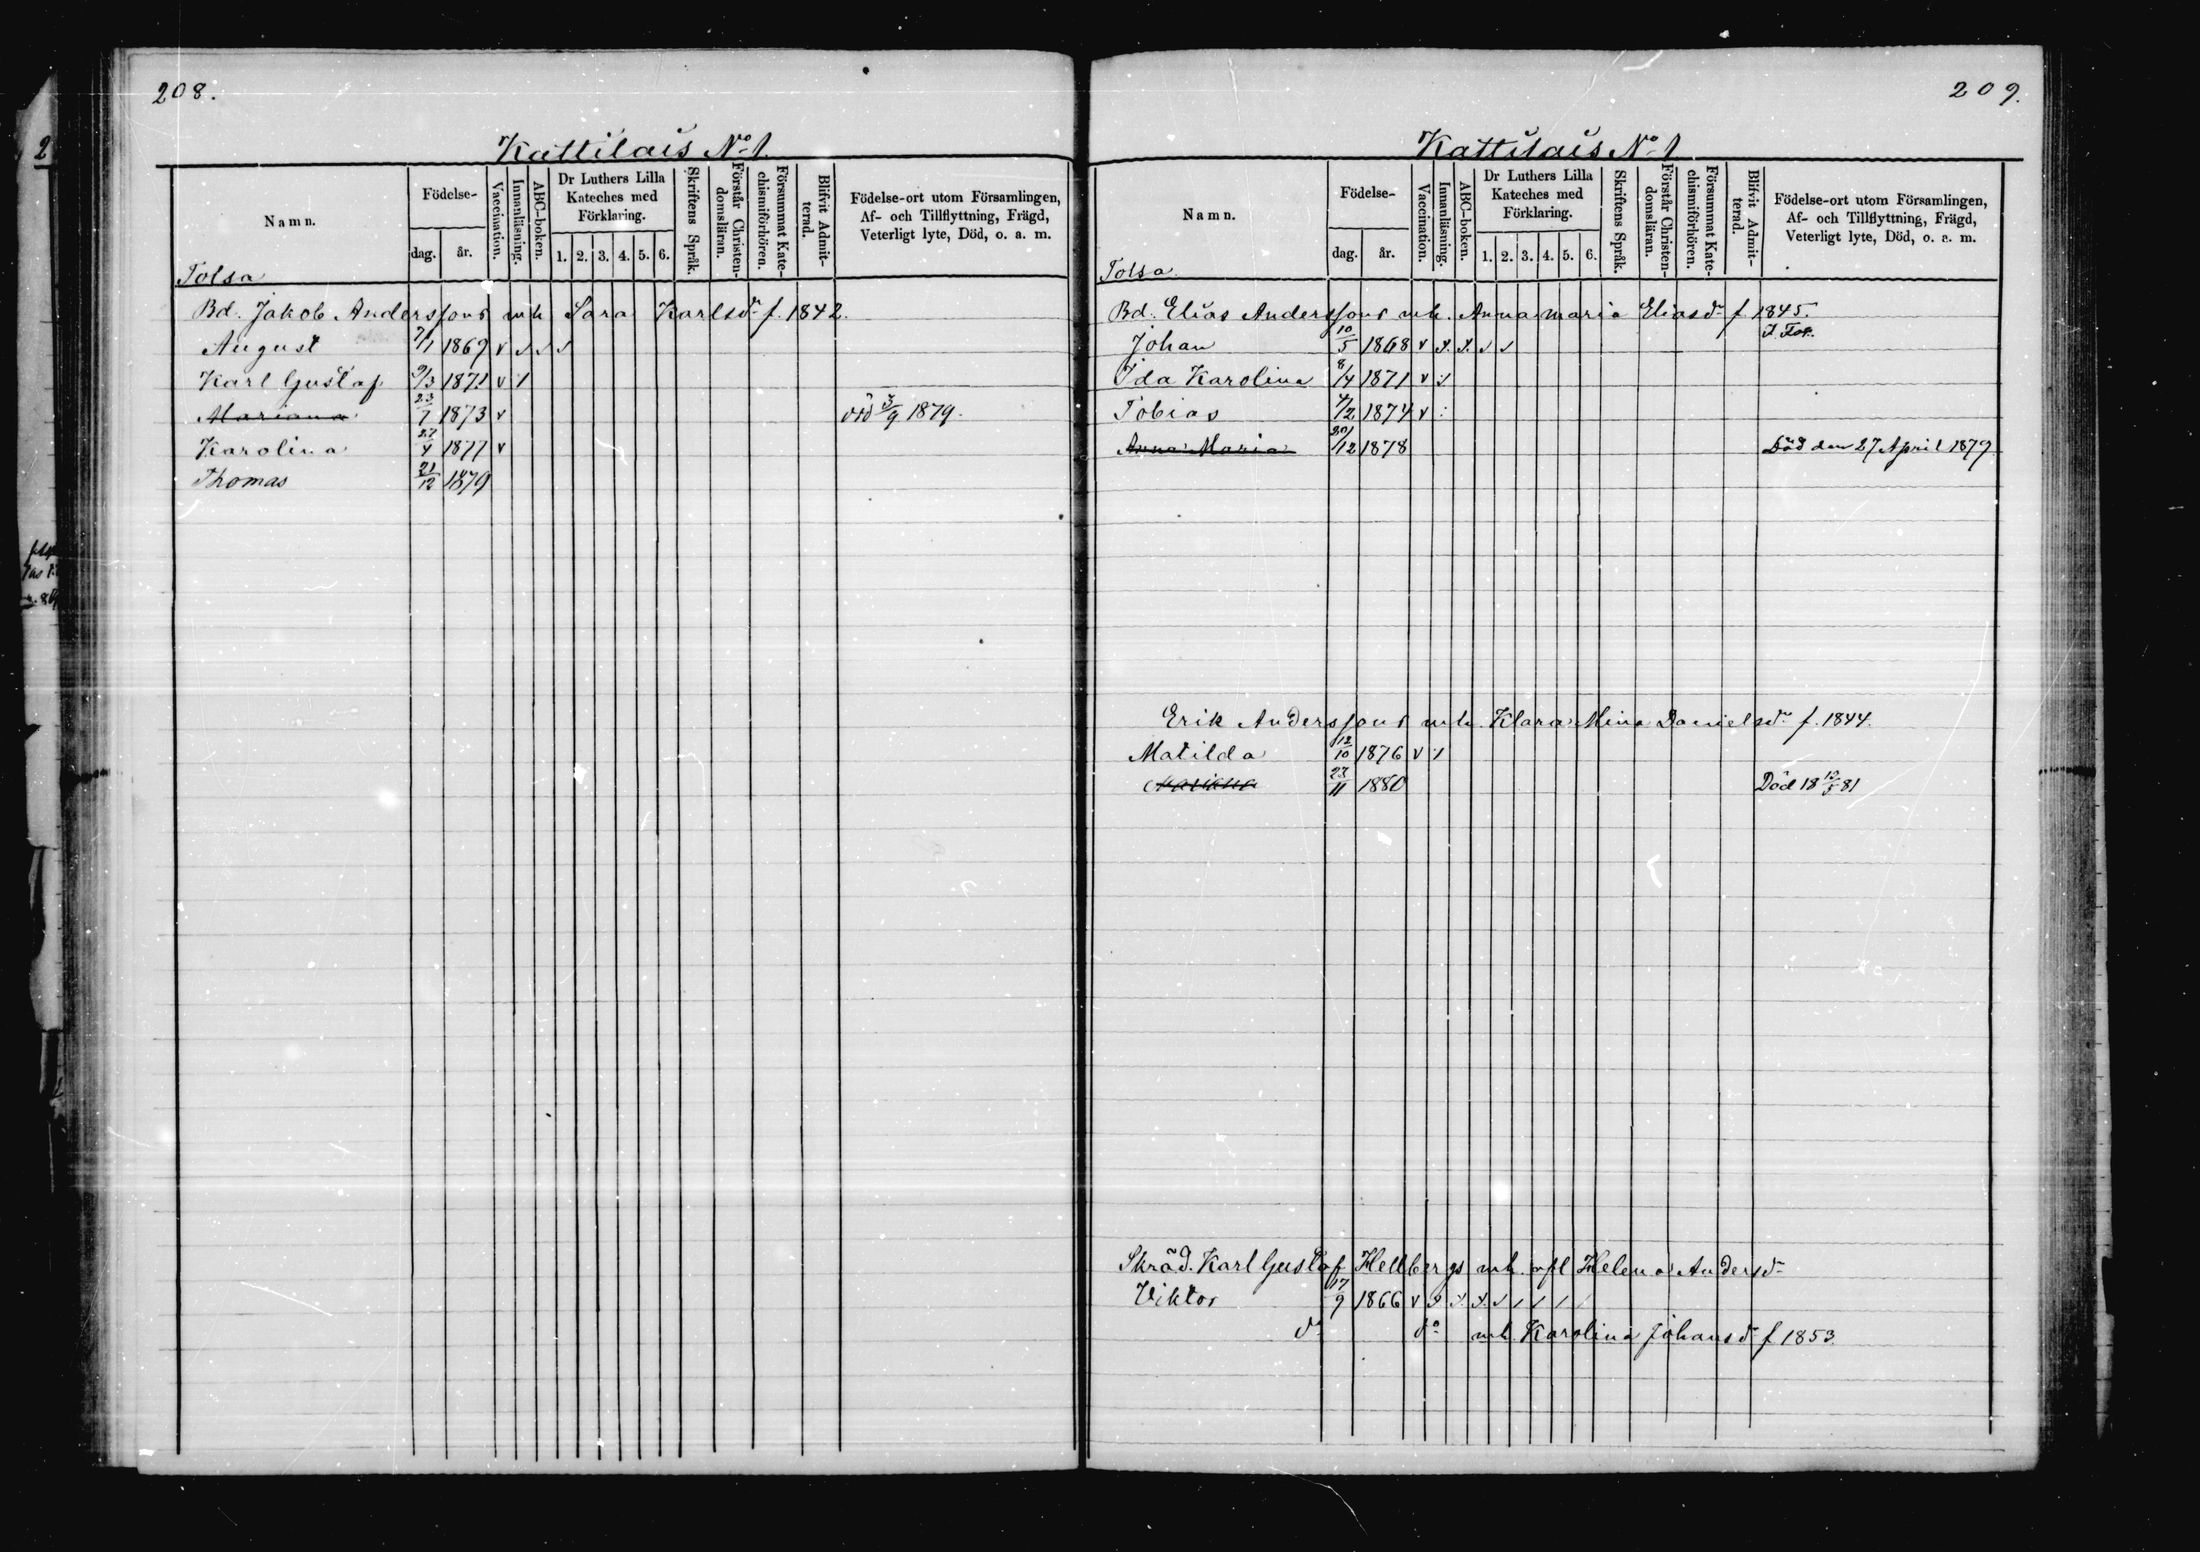 208.
Kattilais No 1.
Namn.
Födelse-
dag.
år.
Vaccination.
Innanläsning.
ABC-boken.
Dr Luthers Lilla Kateches med Förklaring.
1. 2. 3. 4. 5. 6.
Skriftens Språk.
Förstår Christendomsläran.
Försummat Katechismiförhören.
Blifvit Admitterad.
Födelse-ort utom Församlingen,
Af- och Tillflyttning, Frägd,
Veterligt lyte, Död, o. a. m.
Tolsa
Bd. Jakob Anderssons mh Sara Karlsdr f. 1842.
August 7/1 1869 v
Karl Gustaf 9/3 1871 v
Mariana 23/7 1873 v död 3/9 1879.
Karolina 27/4 1877 v
Thomas 21/12 1879
209.
Kattilais No 1
Namn.
Födelse-
dag.
år.
Vaccination.
Innanläsning.
ABC-boken.
Dr Luthers Lilla Kateches med Förklaring.
1. 2. 3. 4. 5. 6.
Skriftens Språk.
Förstår Christendomsläran.
Försummat Katechismiförhören.
Blifvit Admitterad.
Födelse-ort utom Församlingen,
Af- och Tillflyttning, Frägd,
Veterligt lyte, Död, o. a. m.
Tolsa
Bd. Elias Anderssons mh. Anna Maria Eliasdr f 1845.
Johan 10/5 1868 v x x
Ida Karolina 8/4 1871 v
Tobias 4/2 1874 v
Anna Maria 20/12 1878 Död den 27 April 1879
Erik Anderssons mh. Klara Mina Danielsdr f. 1844.
Matilda 12/10 1876 v
Mariana 23/11 1880 Död 18 12/5 81
Skräd. Karl Gustaf Hellbergs mh. afl Helena Andersdr
Viktor 17/9 1866 v x x x
do do mh. Karolina Johansdr f 1853.